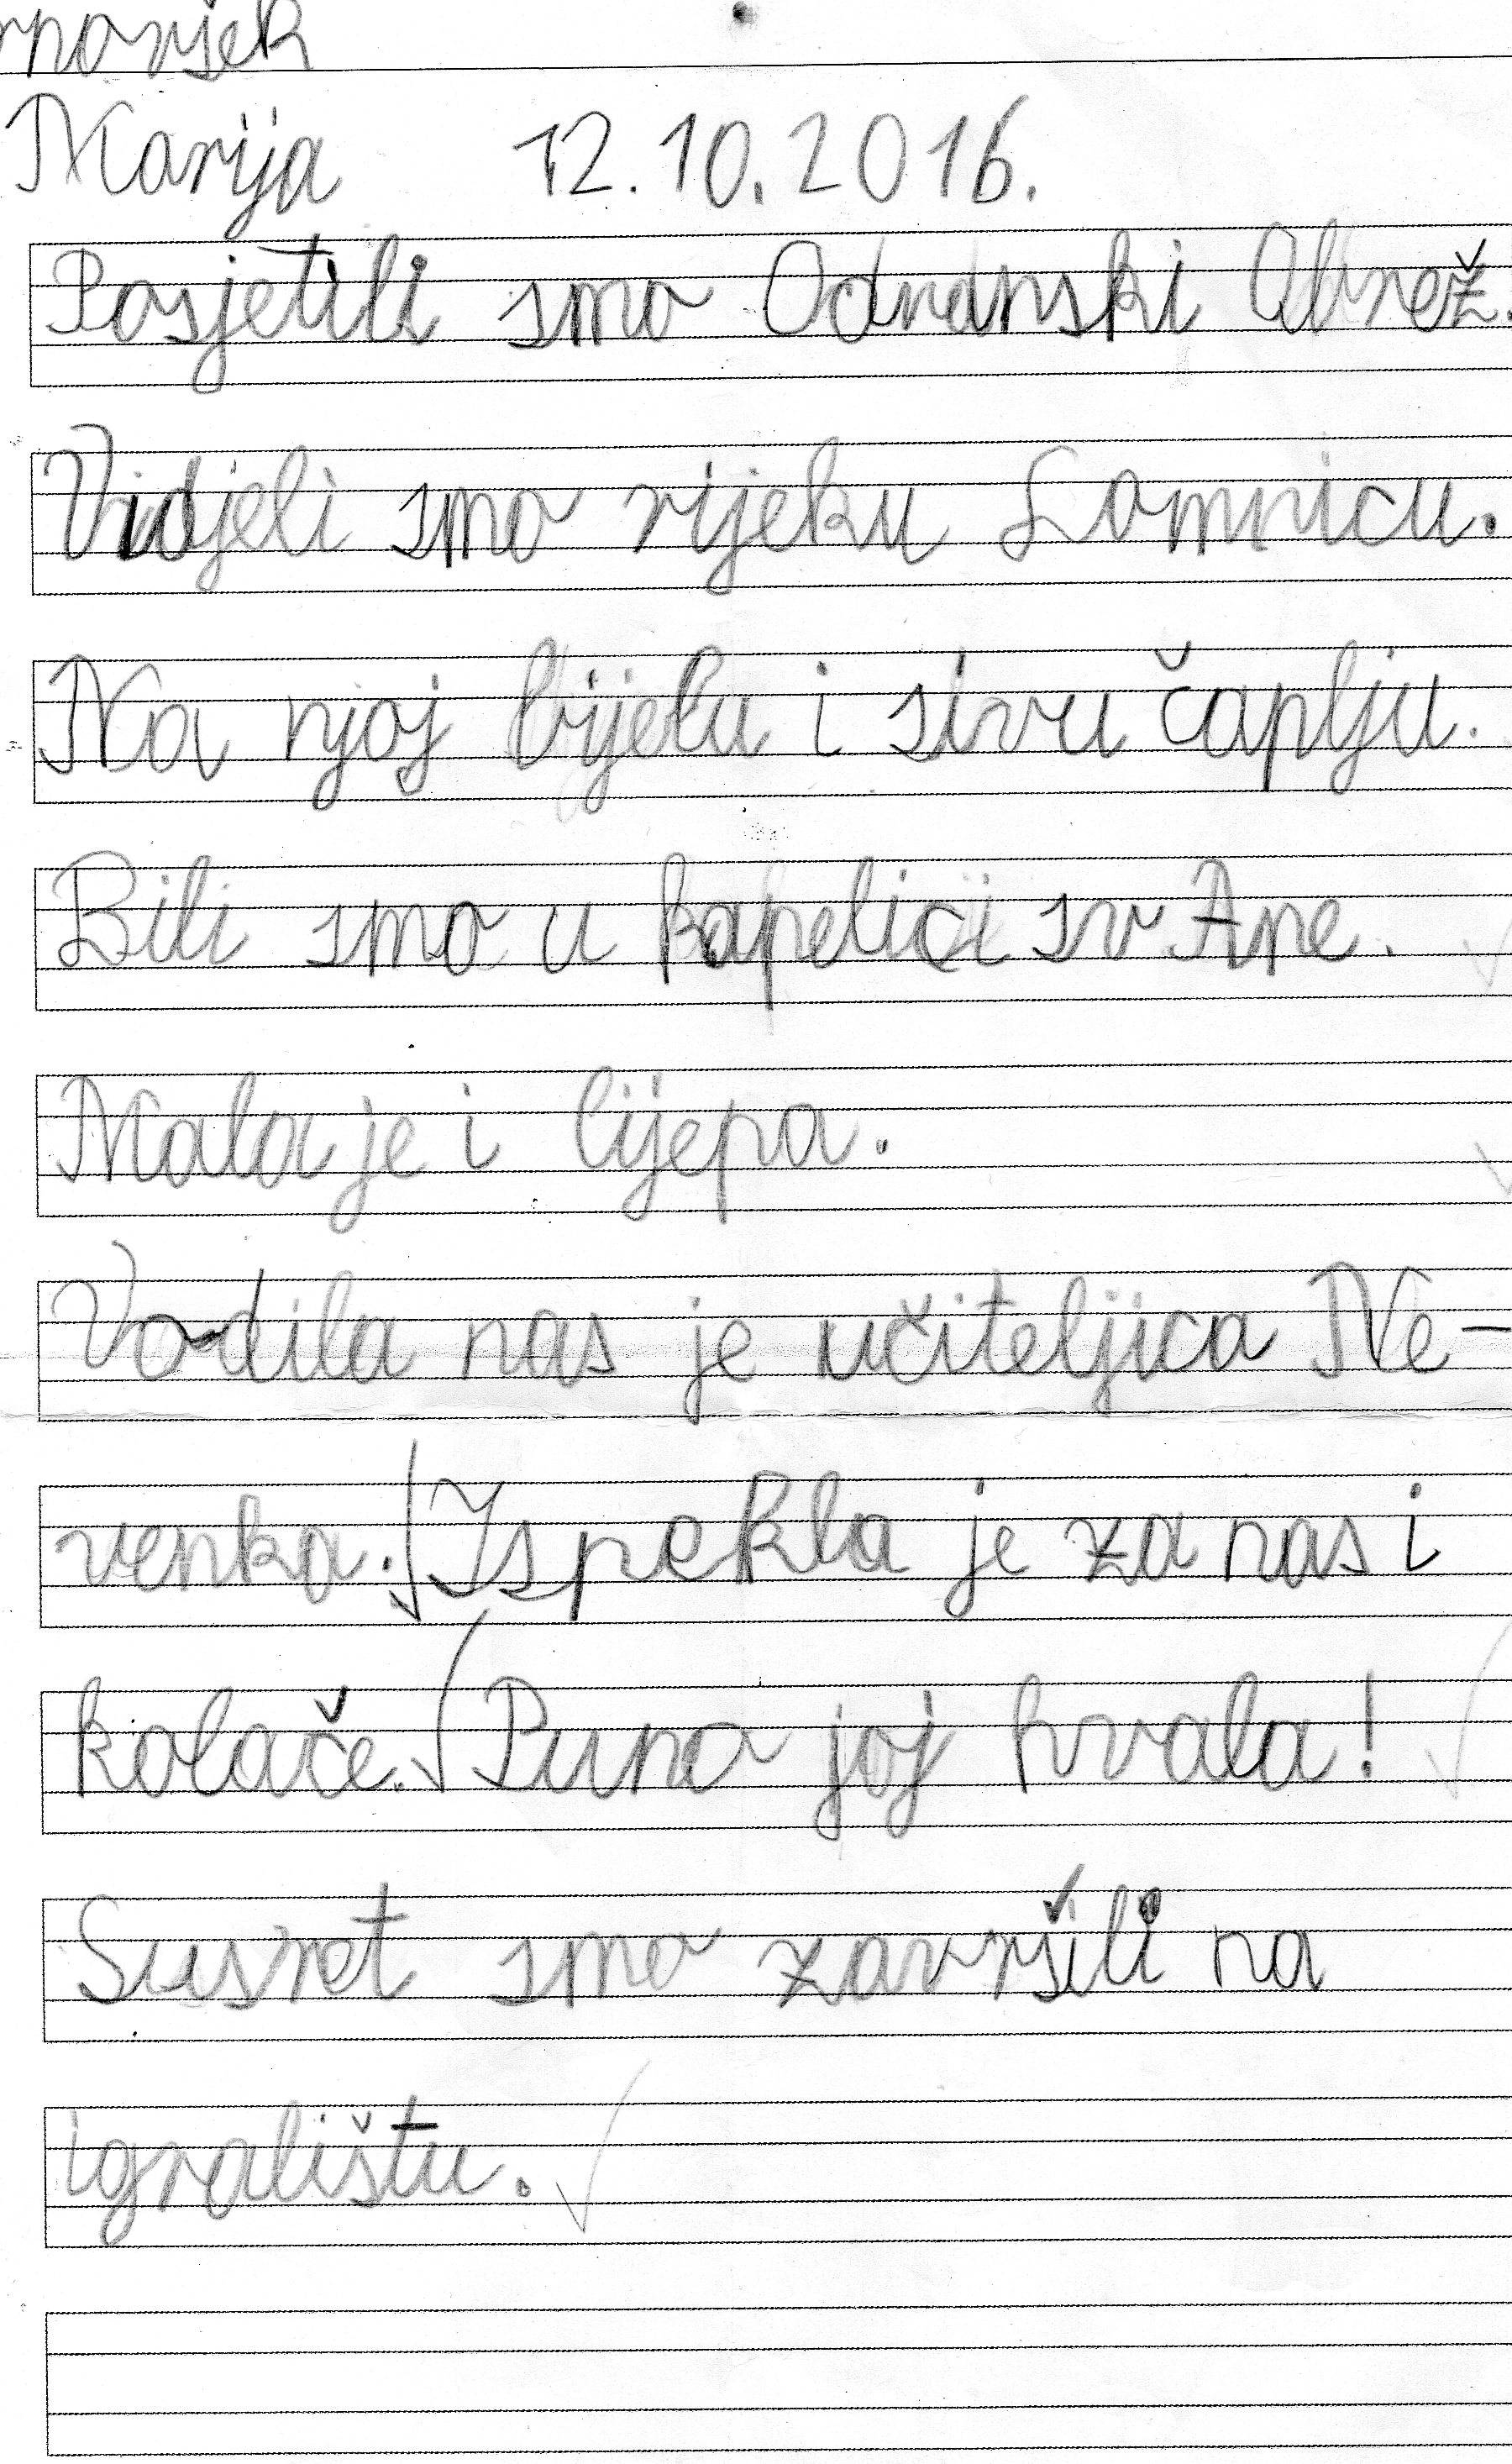 Marija 12.10.2016.
Posjetili smo Odranski Obrež.
Vidjeli smo rijeku Lomnicu.
Na njoj bijelu i sivu čaplju.
Bili smo u kapelici sv Ane.
Mala je i lijepa.
Vodila nas je učiteljica Ne-
venka. Ispekla je za nas i
kolače. Puno joj hvala!
Susret smo završili na
igralištu.